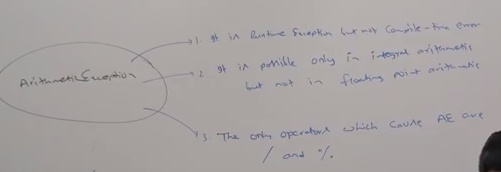 ArithmeticException
1. It is Runtime Exception but not Compile-time error
2. It is possible only in integral arithmetic
but not in floating point arithmetic
3. The only operators which cause AE are
/ and %.